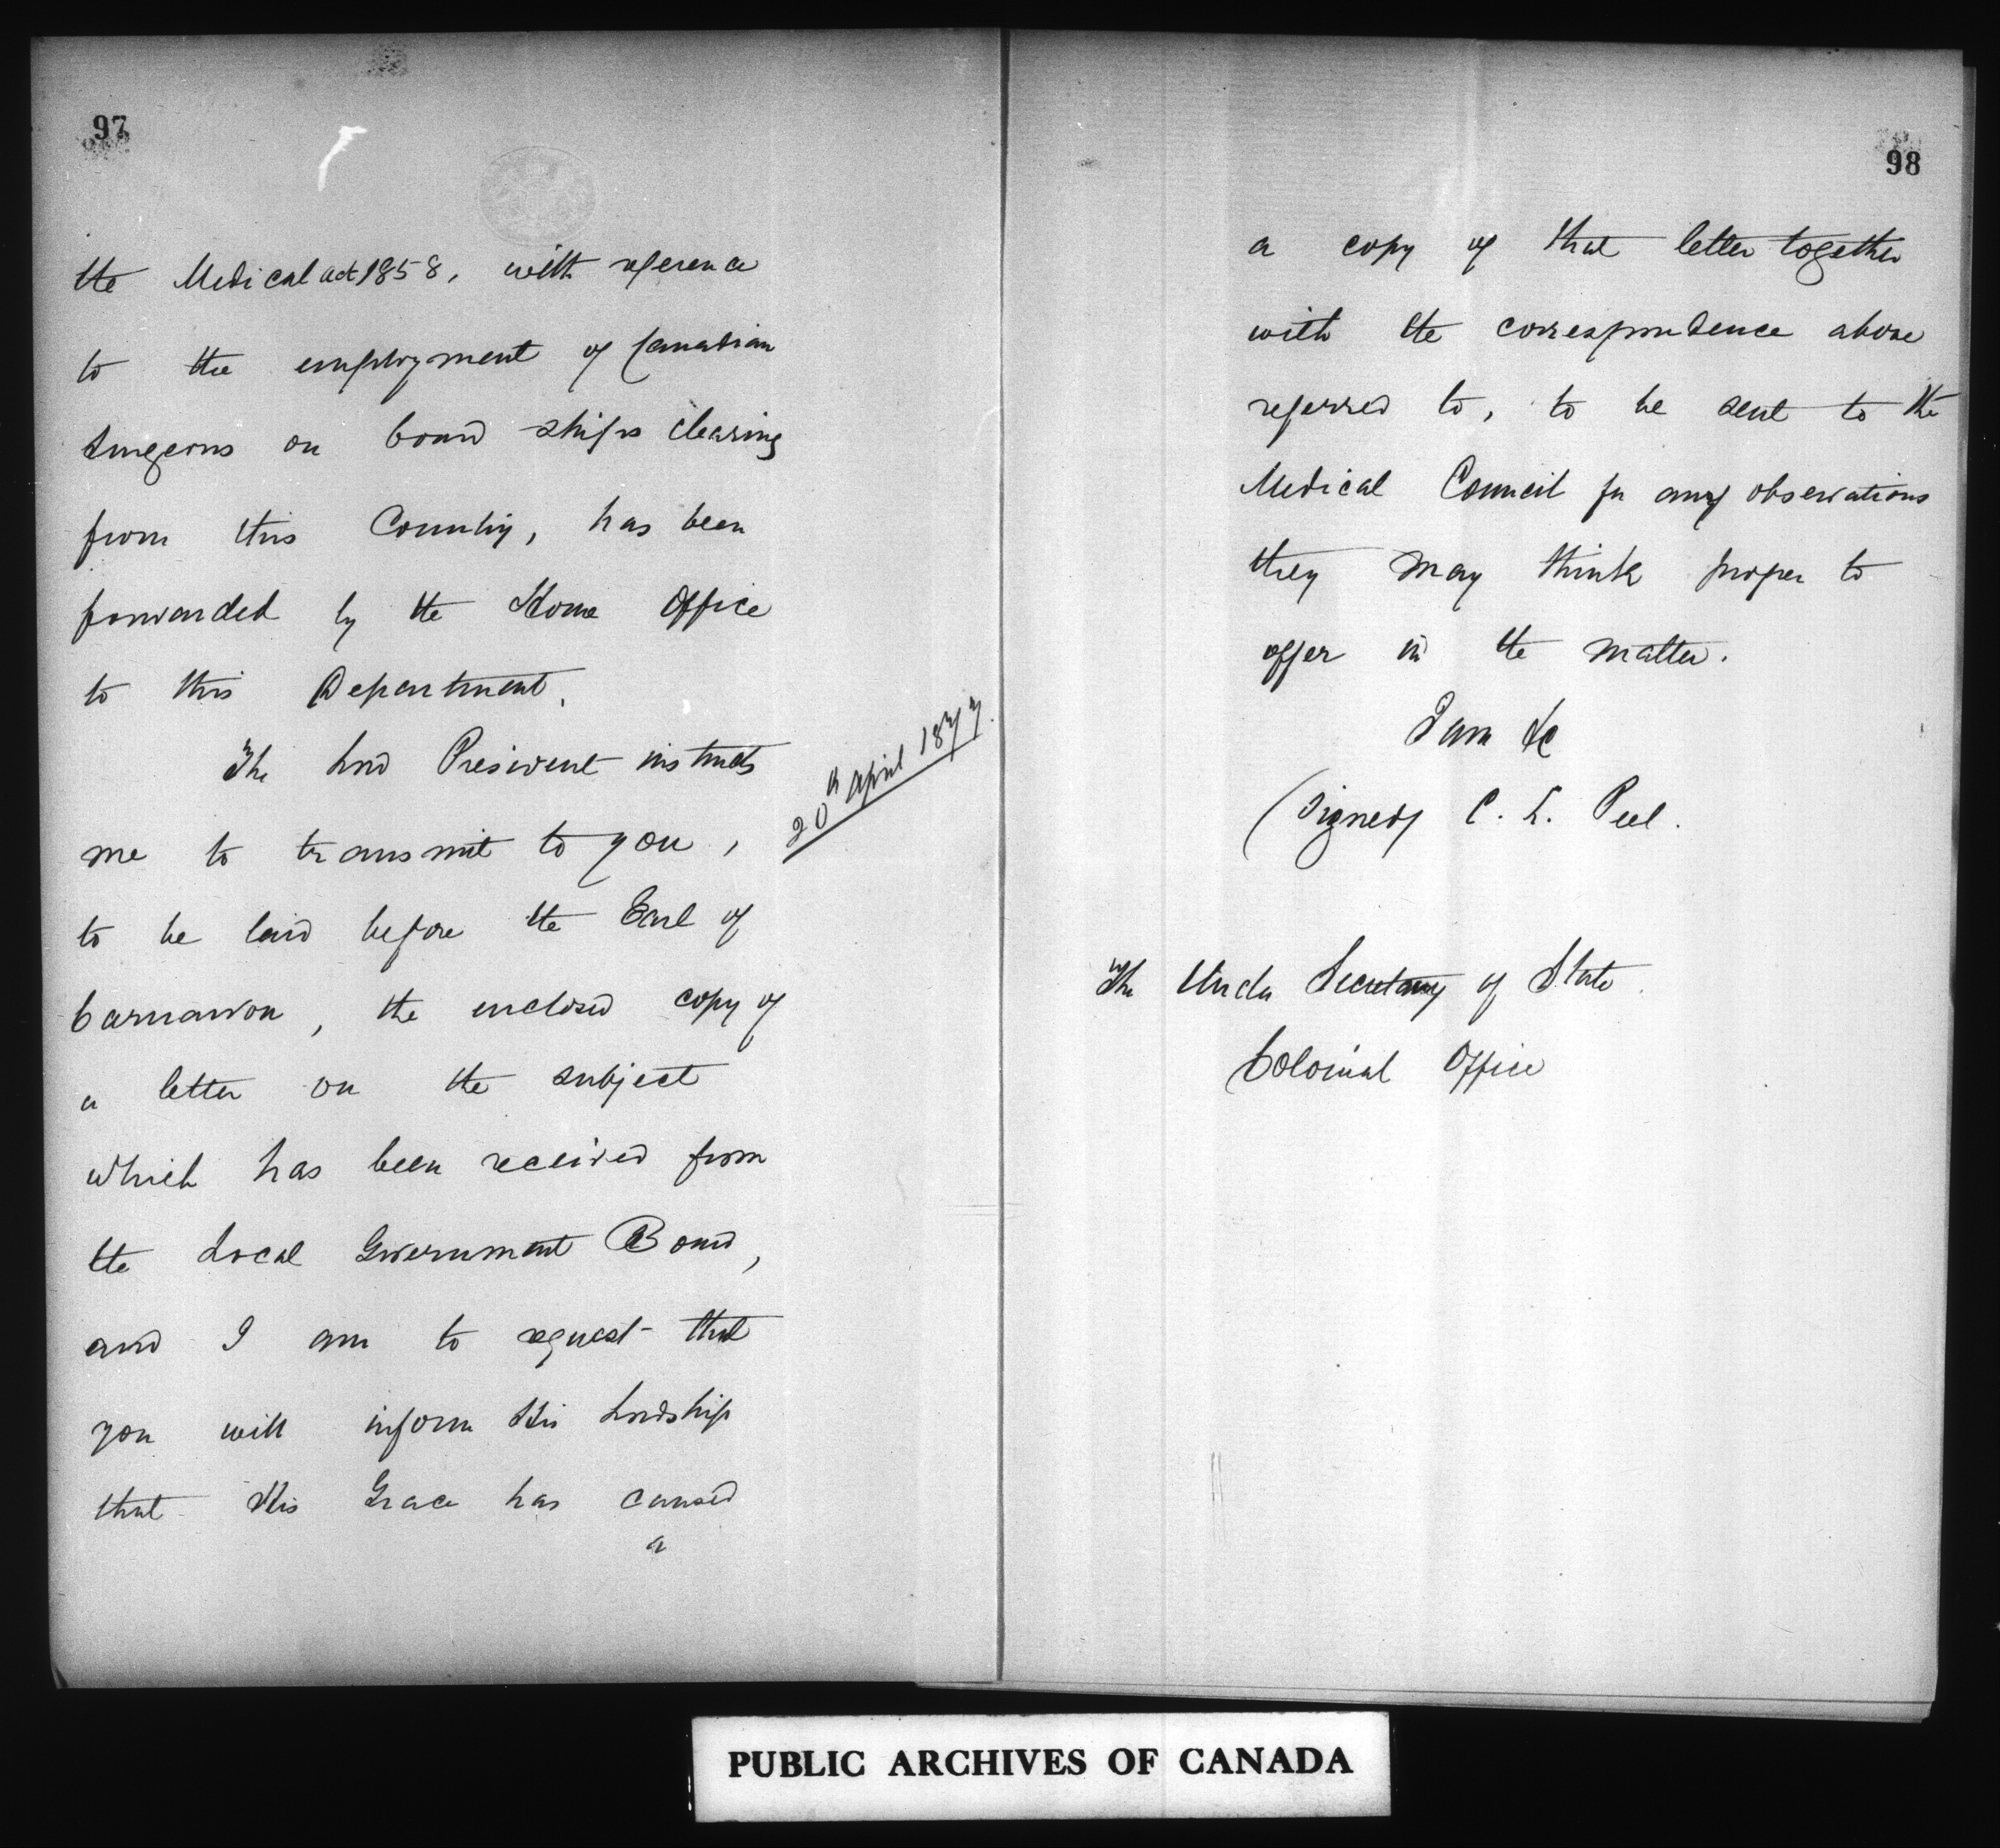 97
the Medical act 1858, with reference
to the employment of Canadian
Surgeons on board ships clearing
from this Country, has been
forwarded by the Home Office
to this Department.
The Lord President instructs
me to transmit to you,
20th April 1877.
to be laid before the Earl of
Carnarvon, the enclosed copy of
a letter on the subject
which has been received from
the Local Government Board,
and I am to request that
you will inform His Lordship
that His Grace has caused
a
98
a copy of that letter together
with the correspondence above
referred to, to be sent to the
Medical Council for any observations
they may think proper to
offer in the matter.
I am &c
(Signed) C. L. Peel.
The Under Secretary of State
Colonial Office
PUBLIC ARCHIVES OF CANADA